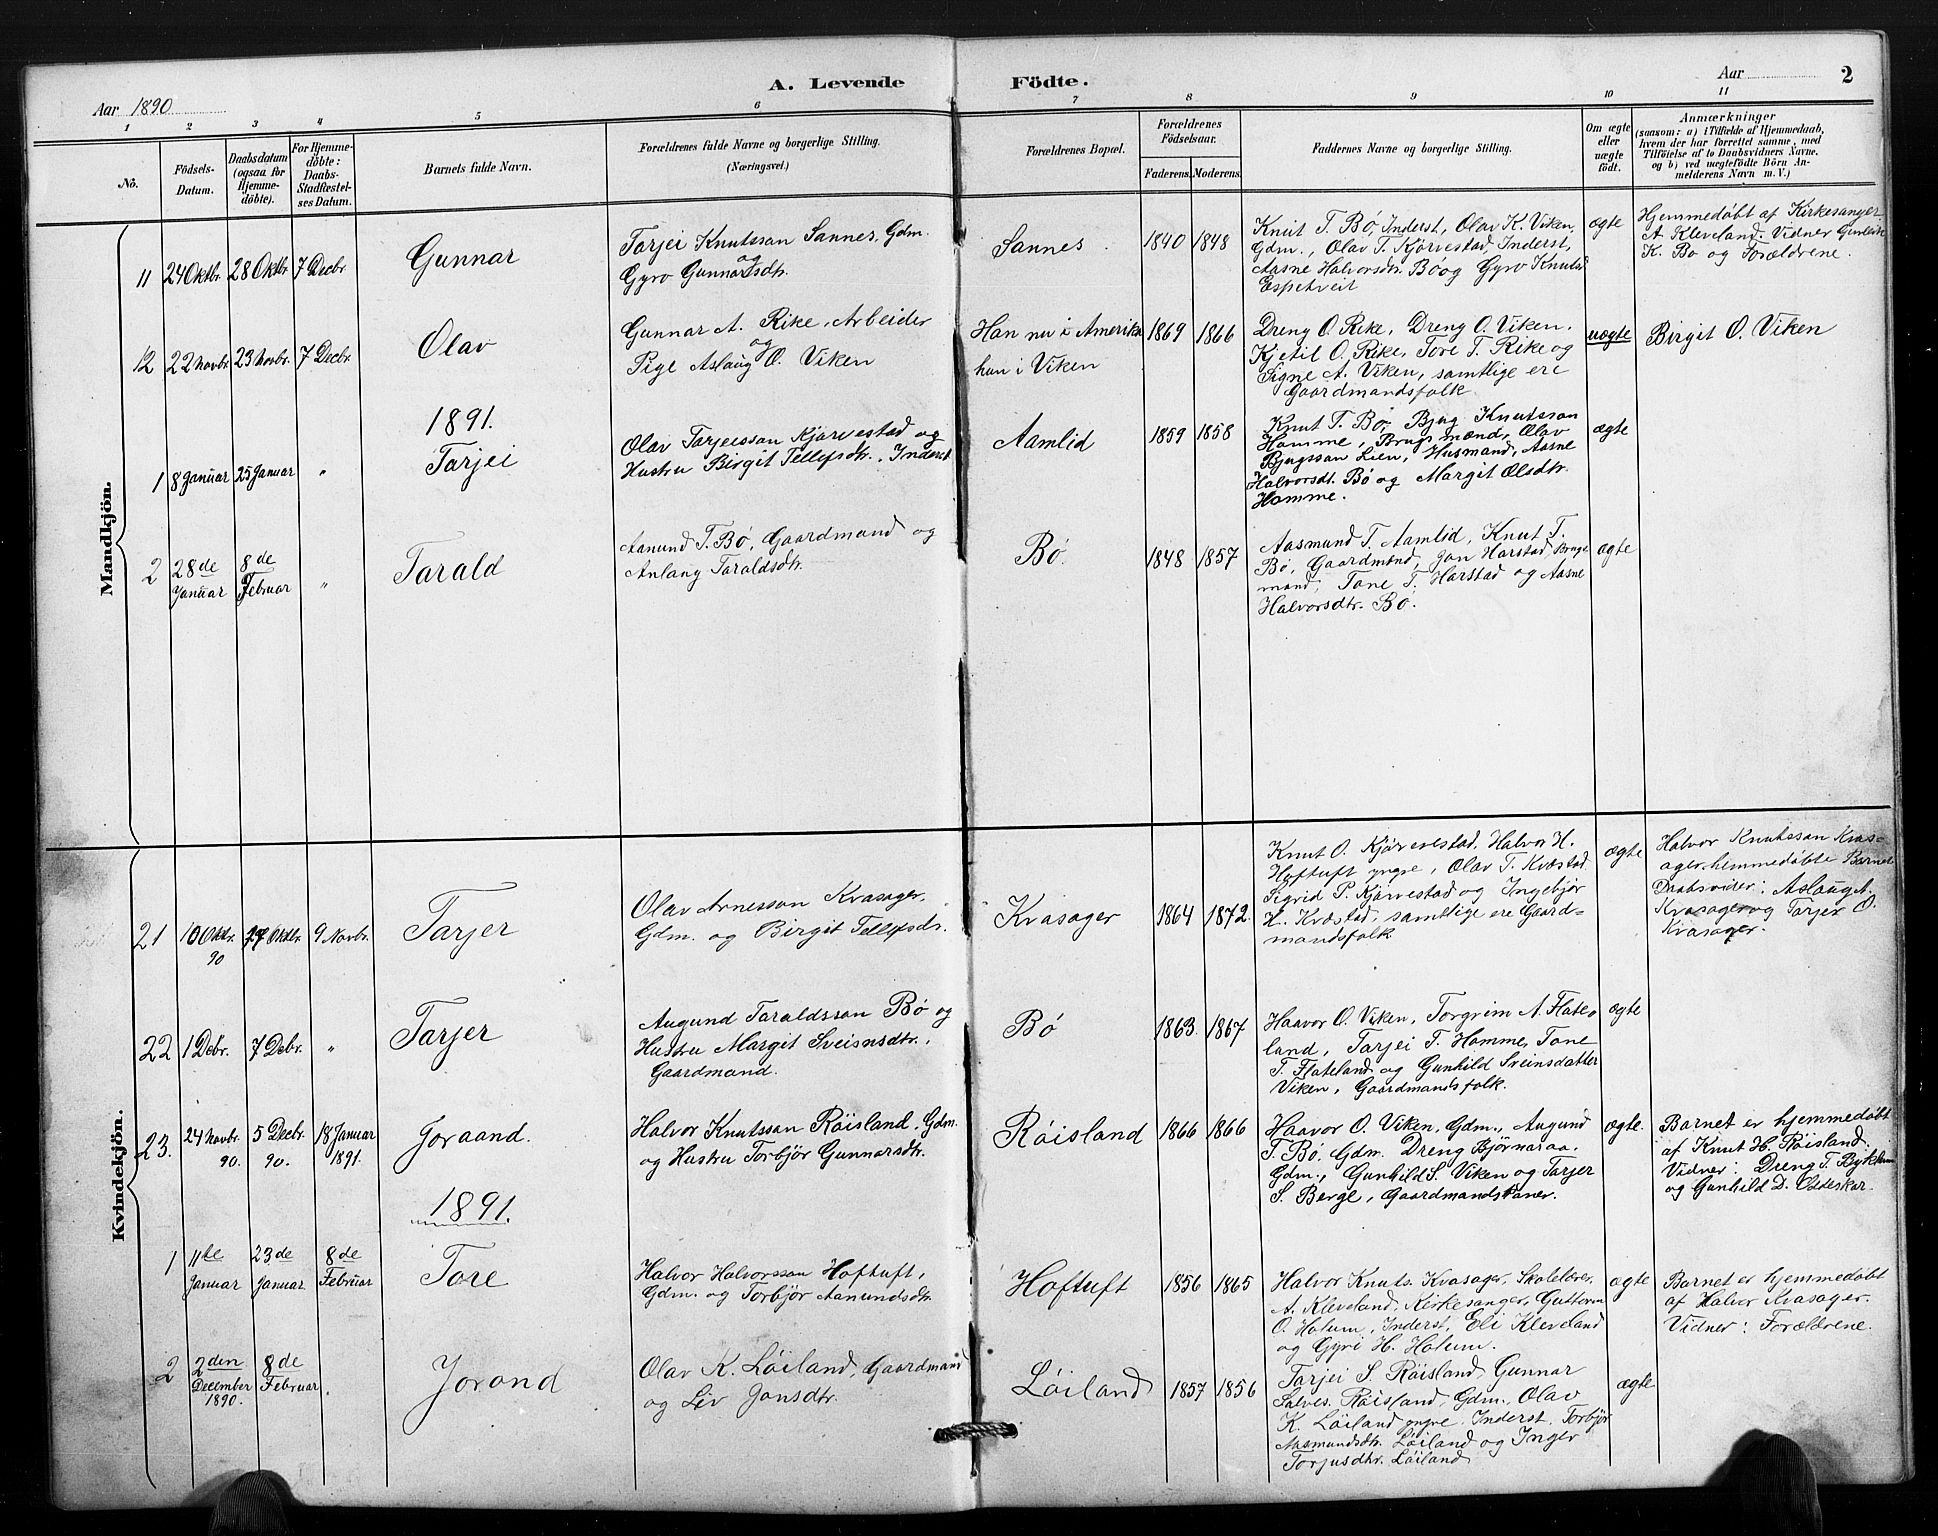 A. Levende Födte.
Aar 1890
Aar
2
1 2 3 4 5 6 7 8 9 10 11
No.
Födsels-
Datum.
Daabsdatum
(ogsaa for
Hjemme-
döbte).
For Hjemme-
döbte:
Daabs-
Stadfæstel-
ses Datum.
Barnets fulde Navn.
Forældrenes fulde Navne og borgerlige Stilling.
(Næringsvei.)
Forældrenes Bopæl.
Forældrenes
Födselsaar.
Faderens. Moderens.
Faddernes Navne og borgerlige Stilling.
Om ægte
eller
uægte
födt.
Anmærkninger
(saasom: a) i Tilfælde af Hjemmedaab,
hvem der har forrettet samme, med
Tilföielse af to Daabsvidners Navne.
og b) ved uægtefödte Börn An-
melderens Navn m. V.)
Mandkjön.
11 24 Oktbr. 28 Oktbr. 7 Decbr.
Gunnar
Tarjei Knutsson Sannes, Gdm.
og
Gyro Gunnarsdtr.
Sannes.
1840 1848
Knut T. Bø, Inderst, Olav K. Viken,
Gdm., Olav T. Kjørvestad, Inderst,
Aasne Halvorsdtr. Bø og Gyro Knutsd.
Espetveit
ægte
Hjemmedøbt af Kirkesanger
A. Kleveland. Vidner Gunleik
K. Bø og Forældrene.
12 22 Novbr. 23 Novbr. 7 Decbr.
Olav
Gunnar A. Rike, Arbeider
og
Pige Aslaug O. Viken
Han nu i Amerika
hun i Viken
1869 1866
Dreng O. Rike, Dreng O. Viken,
Kjetil O. Rike, Tore T. Rike og
Signe A. Viken, samtlige ere
Gaardmandsfolk.
uægte
Birgit O. Viken
1891.
1 8 Januar 25 Januar "
Tarjei
Olav Tarjeisson Kjørvestad og
Hustru Birgit Tellefsdtr., Inderst
Aamlid
1859 1858
Knut T. Bø, Bjug Knutsson
Homme, Brugsmænd, Olav
Bjugssan Lien, Husmand, Aasne
Halvorsdt. Bø og Margit Olsdtr.
Homme.
ægte
2 28de Januar 8de Februar "
Tarald
Aanund T. Bø, Gaardmand og
Anlaug Taraldsdtr.
Bø.
1848 1857
Aasmund T. Aamlid, Knut T.
Bø, Gaardmænd, Jon Harstad Bruge
mand, Tone T. Harstad og Aasne
Halvorsdtr. Bø.
ægte
Kvindekjön.
21 10 Oktbr. 90 Oktbr. 9 Novbr.
Tarjer
Olav Arnesson Kvasager.
Gdm. og Birgit Tellefsdtr.
Kvasager
1864 1872.
Knut O. Kjørvestad, Halvor H.
Hoftuft yngre, Olav T. Kvæstad
Sigrid P. Kjørvestad og Ingebjør
H. Kvæstad, samtlige ere Gaard=
mandsfolk
ægte
Halvor Knutsson Kvas-
ager hjemmedøbte Barnet
Daabsvidner: Aslaug A.
Kvasager og Tarjer O.
Kvasager.
22 1 Debr. 7 Debr. "
Tarjer
Augund Taraldsson Bø og
Hustru Margit Sveinsdtr.,
Gaardmand.
Bø
1863. 1867
Haavor O. Viken, Torgrim A. Flate=
land, Tarjei T. Homme, Tone
T. Flateland og Gunhild Sveinsdatter
Viken, Gaardmandsfolk.
ægte
23. 24 Novbr. 90. 5 Decbr. 90. 18 Januar 1891.
Joraand.
Halvor Knutsson Røisland, Gdm.
og Hustru Torbjør Gunnarsdtr.
Røisland
1866 1866
Haavor O. Viken, Gdm., Augund
T. Bø, Gdm. Dreng Bjørnaraa.
Gdm., Gunhild S. Viken og Tarjer
S. Berge, Gaardmandskaner.
ægte.
Barnet er hjemmedøbt
af Knut H. Røisland.
Vidner: Dreng T. Bykle
og Gunhild D.
1891.
1 11te Januar 23de Januar 8de Februar
Tore
Halvor Halvorsson Hoftuft,
Gdm. og Torbjør Aanundsdtr.
Hoftuft
1856 1865
Halvor Knuts. Kvasager, Skolelærer,
A. Kleveland, Kirkesanger, Guttorm
O. Hotum, Inderst, Eli Kleveland
og Gyri H. Hotum.
ægte
Barnet er hjemmedøbt
af Halvor Kvasager.
Vidner: Forældrene.
2 2den December 1890. 8de Februar .
Jorond
Olav K. Løiland, Gaardmand
og Liv Jonsdtr.
Løiland
1857 1856
Tarjei S. Røisland, Gunnar
Salves. Røisland, Gdm., Olav
K. Løiland yngre. Inderst, Torbjør
Aasmundsdtr. Løiland og Inger
Torjusdtr. Løiland
ægte